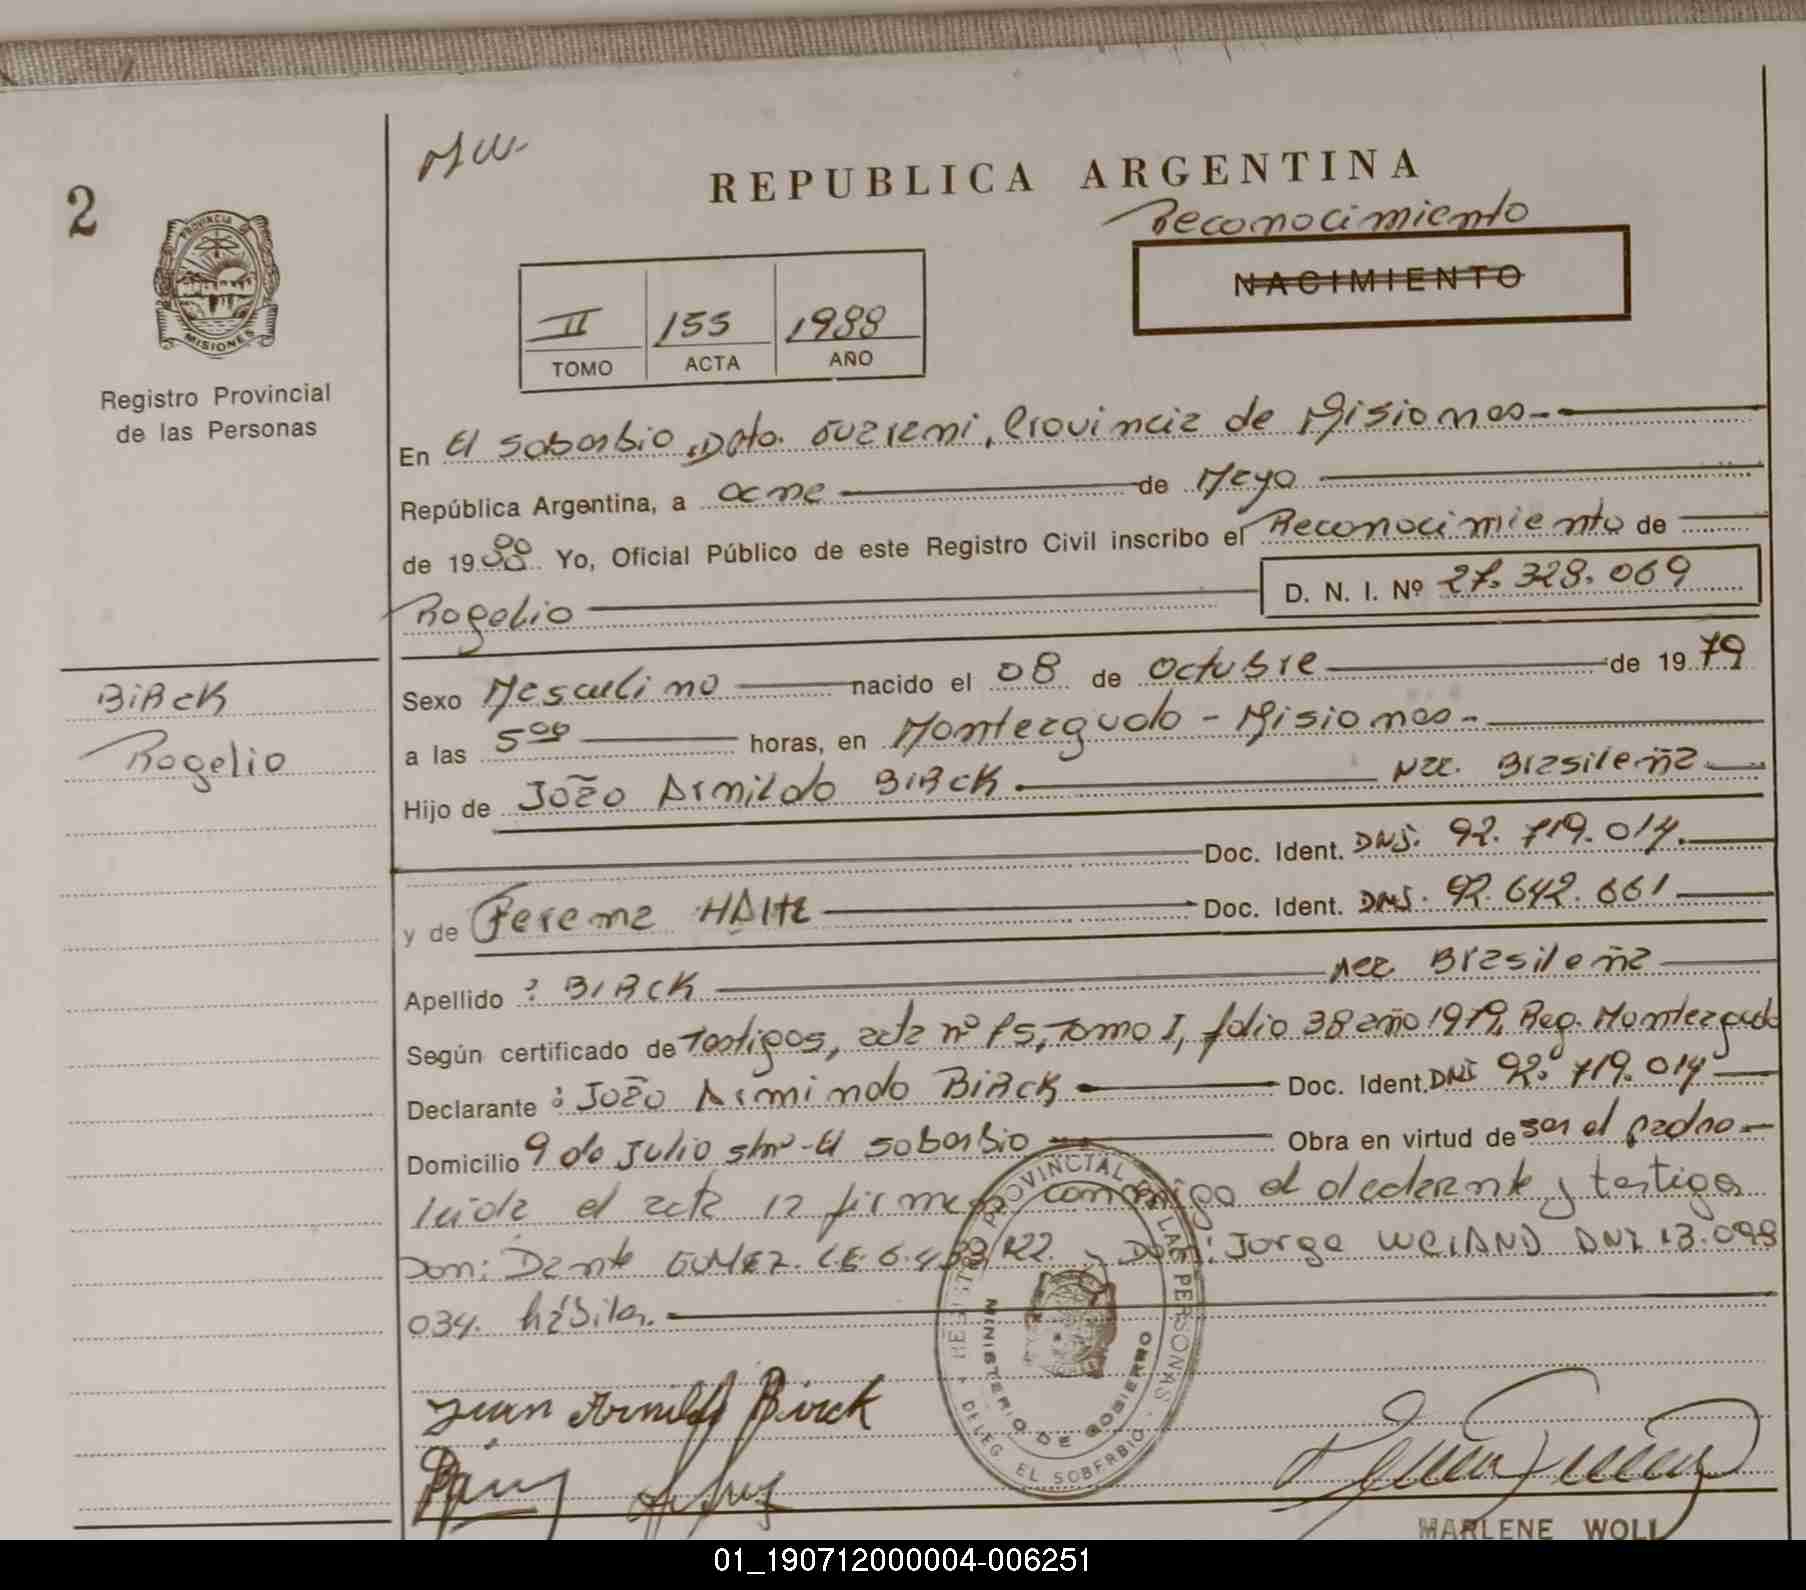 2
REPUBLICA ARGENTINA
Reconocimiento
NACIMIENTO
PROVINCIA
MISIONES
Registro Provincial
de las Personas
II 155 1988
TOMO ACTA AÑO
En El Soberbio, Dpto. Guarani, Provincia de Misiones.-
República Argentina, a once de Mayo
de 1988 Yo, Oficial Público de este Registro Civil inscribo el Reconocimiento de
Rogelio D. N. I. Nº 27.328.069
BiRcK
Rogelio
Sexo Masculino nacido el 08 de Octubre de 1979
a las 5ºº horas, en Monteagudo - Misiones.-
Hijo de João Arnildo BiRcK Nac. Brasileña
Doc. Ident. DNI. 92.719.014.
y de Doc. Ident. DNI. 92.642.661
Apellido : BIRcK Nac. Brasileña
Según certificado de Testigos, acta nº Tomo I, folio 38 año 1979, Reg. Monteagudo
Declarante : João Armindo BiRcK Doc. Ident. DNI 92.719.014
Domicilio 9 de Julio s/nº - El Soberbio Obra en virtud de ser el padre
leida el acta la firman conmigo el declarante y testigos
Don: Dante GOMEZ. LE 6. y Don: Jorge WEIAND DNI 13.098
034. hábiles.
REGISTRO PROVINCIAL DE LAS PERSONAS
MINISTERIO DE GOBIERNO
DELEG. EL SOBERBIO
Juan Arnildo Birck
MARLENE WOLL
01_190712000004-006251